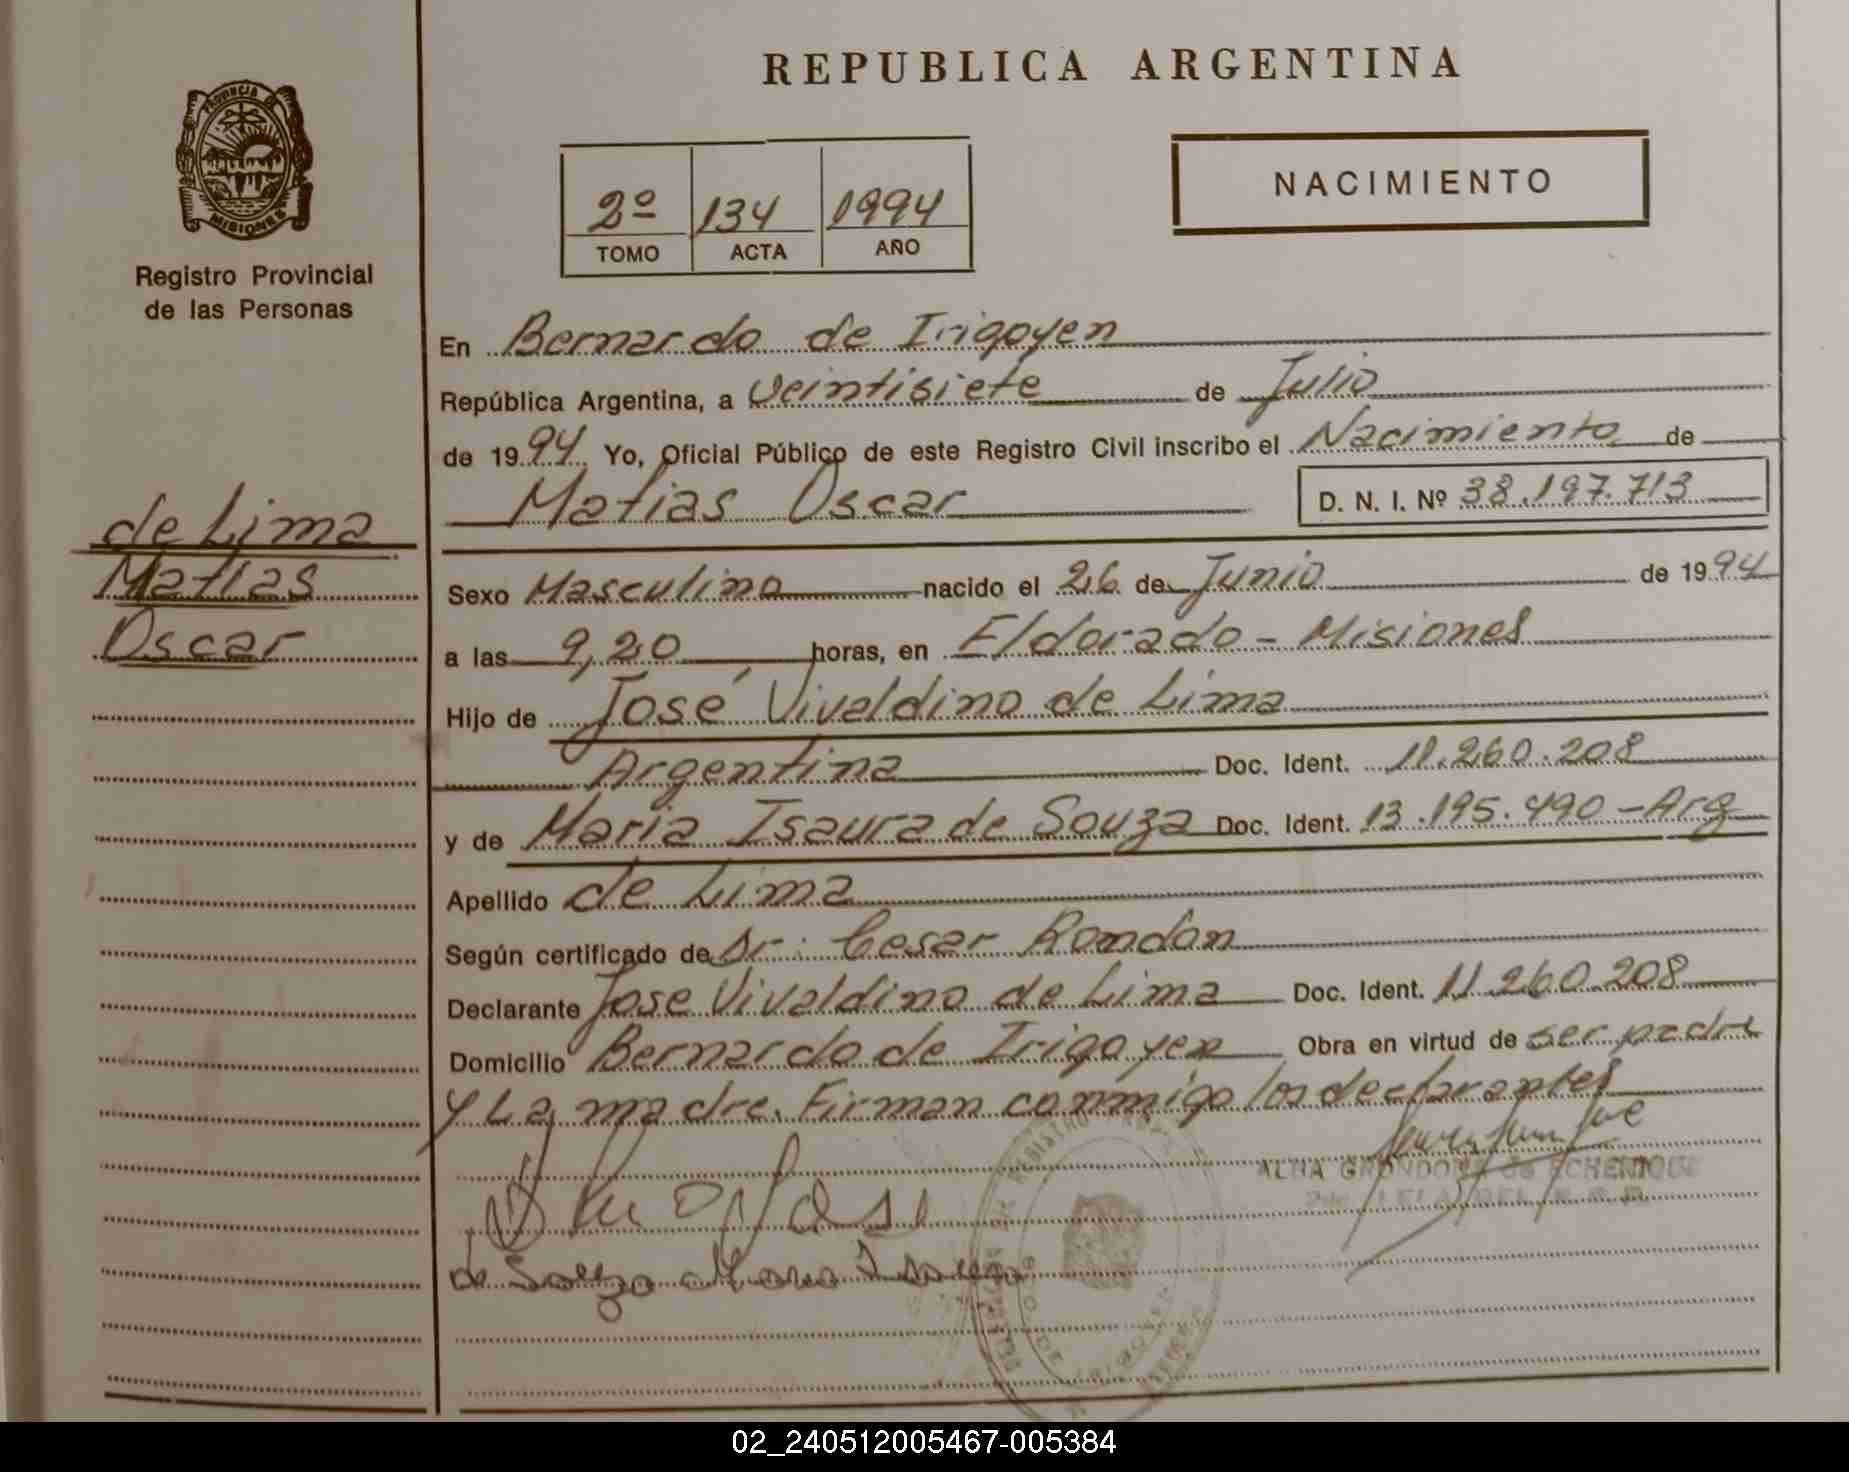 REPUBLICA ARGENTINA
PROVINCIA DE
MISIONES
Registro Provincial
de las Personas
2º 134 1994
TOMO ACTA AÑO
NACIMIENTO
de Lima
Matias
Oscar
En Bernardo de Irigoyen
República Argentina, a Veintisiete de Julio
de 1994 Yo, Oficial Público de este Registro Civil inscribo el Nacimiento de
Matias Oscar D. N. I. Nº 38.197.713
Sexo Masculino nacido el 26 de Junio de 1994
a las 9,20 horas, en Eldorado - Misiones
Hijo de José Vivaldino de Lima
Argentina Doc. Ident. 11.260.208
y de Maria Isaura de Souza Doc. Ident. 13.195.490 - Arg
Apellido de Lima
Según certificado de Dr. Cesar Rondon
Declarante Jose Vivaldino de Lima Doc. Ident. 11.260.208
Domicilio Bernardo de Irigoyen Obra en virtud de ser padre
y La madre. Firman conmigo los declarantes
ALBA GRONDONA de ECHENIQUE
de Souza Maria Isaura
02_240512005467-005384